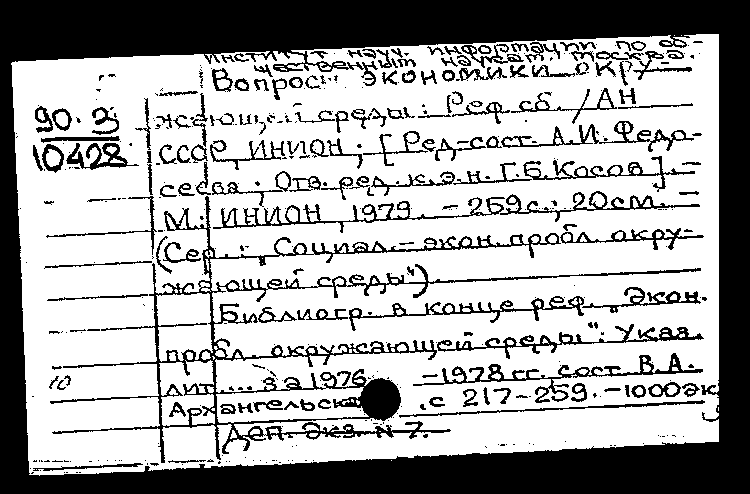 Институт науч. информации по об-
щественным наукам. Москва.
Вопросы экономики окру-
90.3
жающей среды: Реф. сб. / АН
10428
СССР, ИНИОН; [Ред.-сост. А.И. Федо-
сеева; Отв. ред. к.э.н. Г.Б. Косов]. –
М.: ИНИОН, 1979. – 259с.; 20см. –
(Сер.: „Социал.-экон. пробл. окру-
жающей среды").
Библиогр. в конце реф. „Экон.
пробл. окружающей среды": Указ.
10
лит.... за 1976 -1978 гг. сост. В.А.
Архангельска .с 217-259. -1000эк
Деп. Экз. N 7.